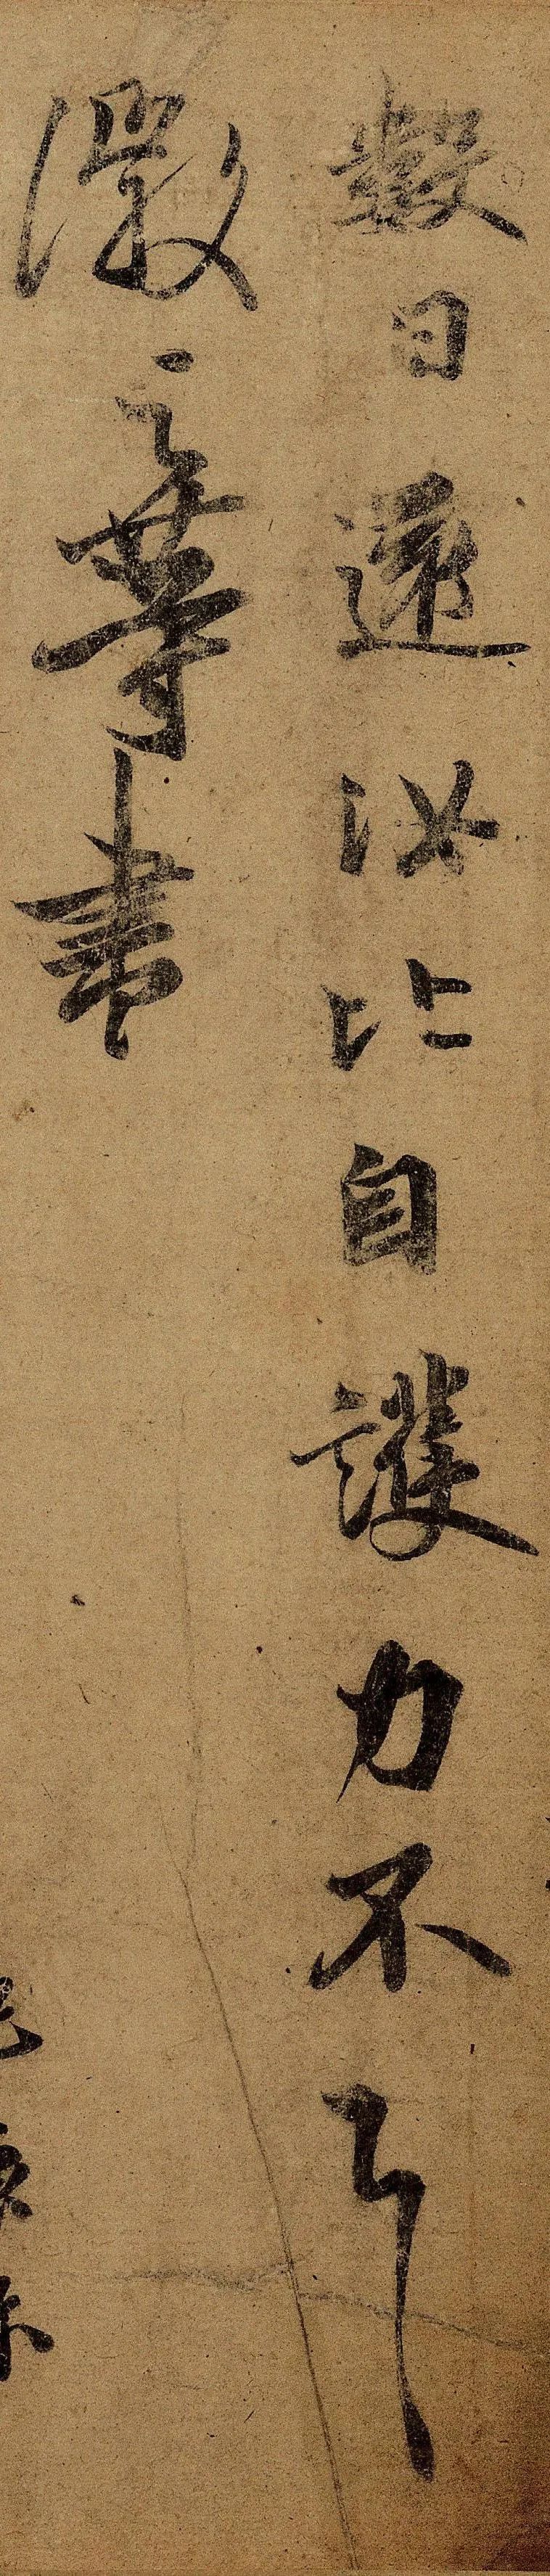 數日還汝比自護力不具
徽之等書